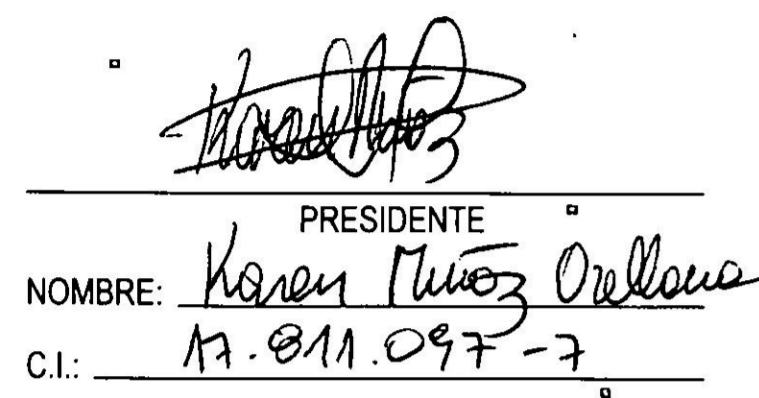 Karen Muñoz
PRESIDENTE
NOMBRE: Karen Muñoz Orellana
C.I.: 17.811.097-7